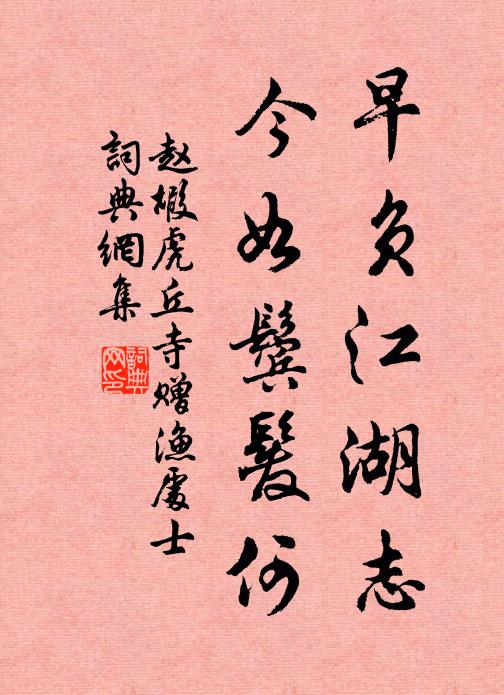 早负江湖志
今如鬓髮何
赵嘏虎丘寺赠渔處士
詞典網集
詞典网印